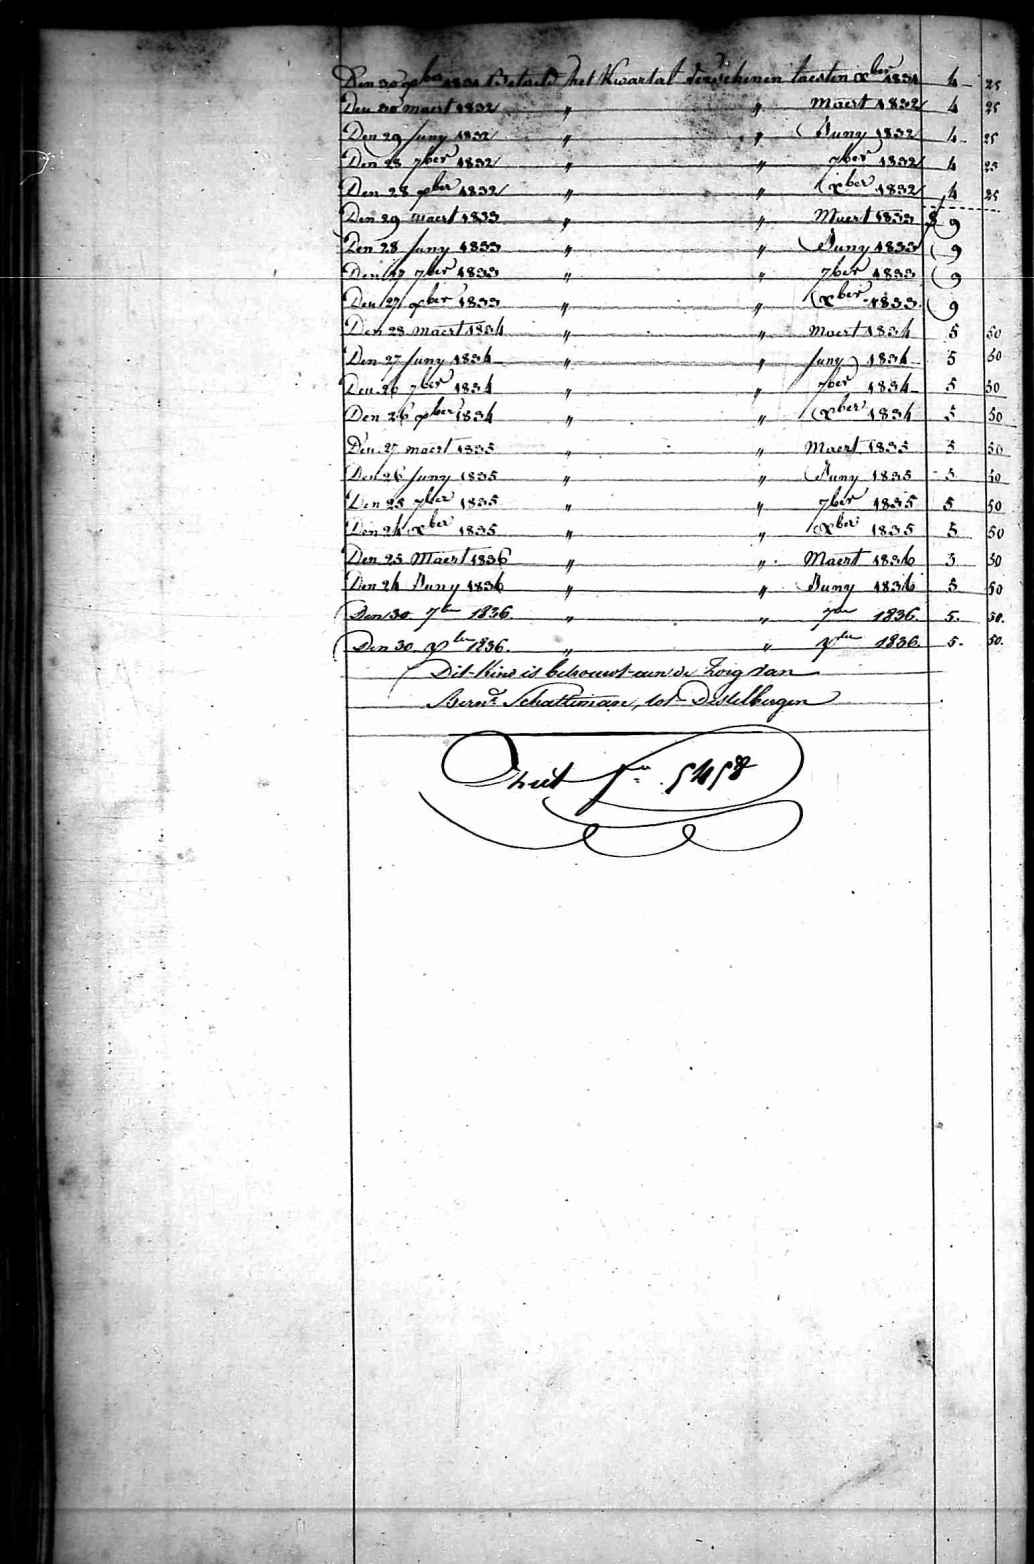 Den 30 xber 1831 Betaeld het Kwartal verschenen laesten xber 1831 4 25
Den 30 maert 1832 " " Maert 1832 4 25
Den 29 Juny 1832 " " Juny 1832 4 25
Den 28 7ber 1832 " " 7ber 1832 4 25
Den 28 xber 1832 " " xber 1832 4 25
Den 29 maert 1833 " " Maert 1833 9
Den 28 Juny 1833 " " Juny 1833 9
Den 27 7ber 1833 " " 7ber 1833 9
Den 27 xber 1833 " " xber 1833 9
Den 28 maert 1834 " " Maert 1834 5 50
Den 27 Juny 1834 " " Juny 1834 5 50
Den 26 7ber 1834 " " 7ber 1834 5 50
Den 26 xber 1834 " " xber 1834 5 50
Den 27 maert 1835 " " Maert 1835 5 50
Den 26 Juny 1835 " " Juny 1835 5 50
Den 25 7ber 1835 " " 7ber 1835 5 50
Den 24 xber 1835 " " xber 1835 5 50
Den 25 Maert 1836 " " Maert 1836 5 50
Den 24 Juny 1836 " " Juny 1836 5 50
Den 30. 7ber 1836. " " 7ber 1836. 5. 50.
Den 30. xber 1836. " " xber 1836. 5. 50.
Dit Kind is betrouwt aen de Zorg van
Bernd. Schatteman, tot Destelbergen